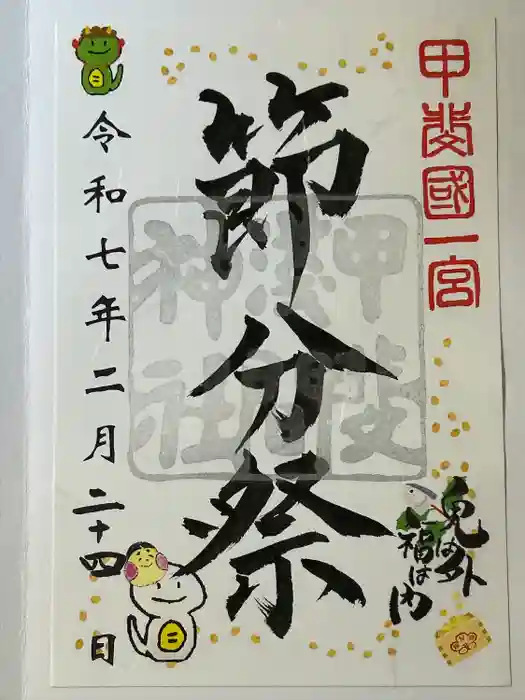 甲斐國一宮
節分祭
甲斐
淺間
神社
鬼は外
福は内
令和七年二月二十四日